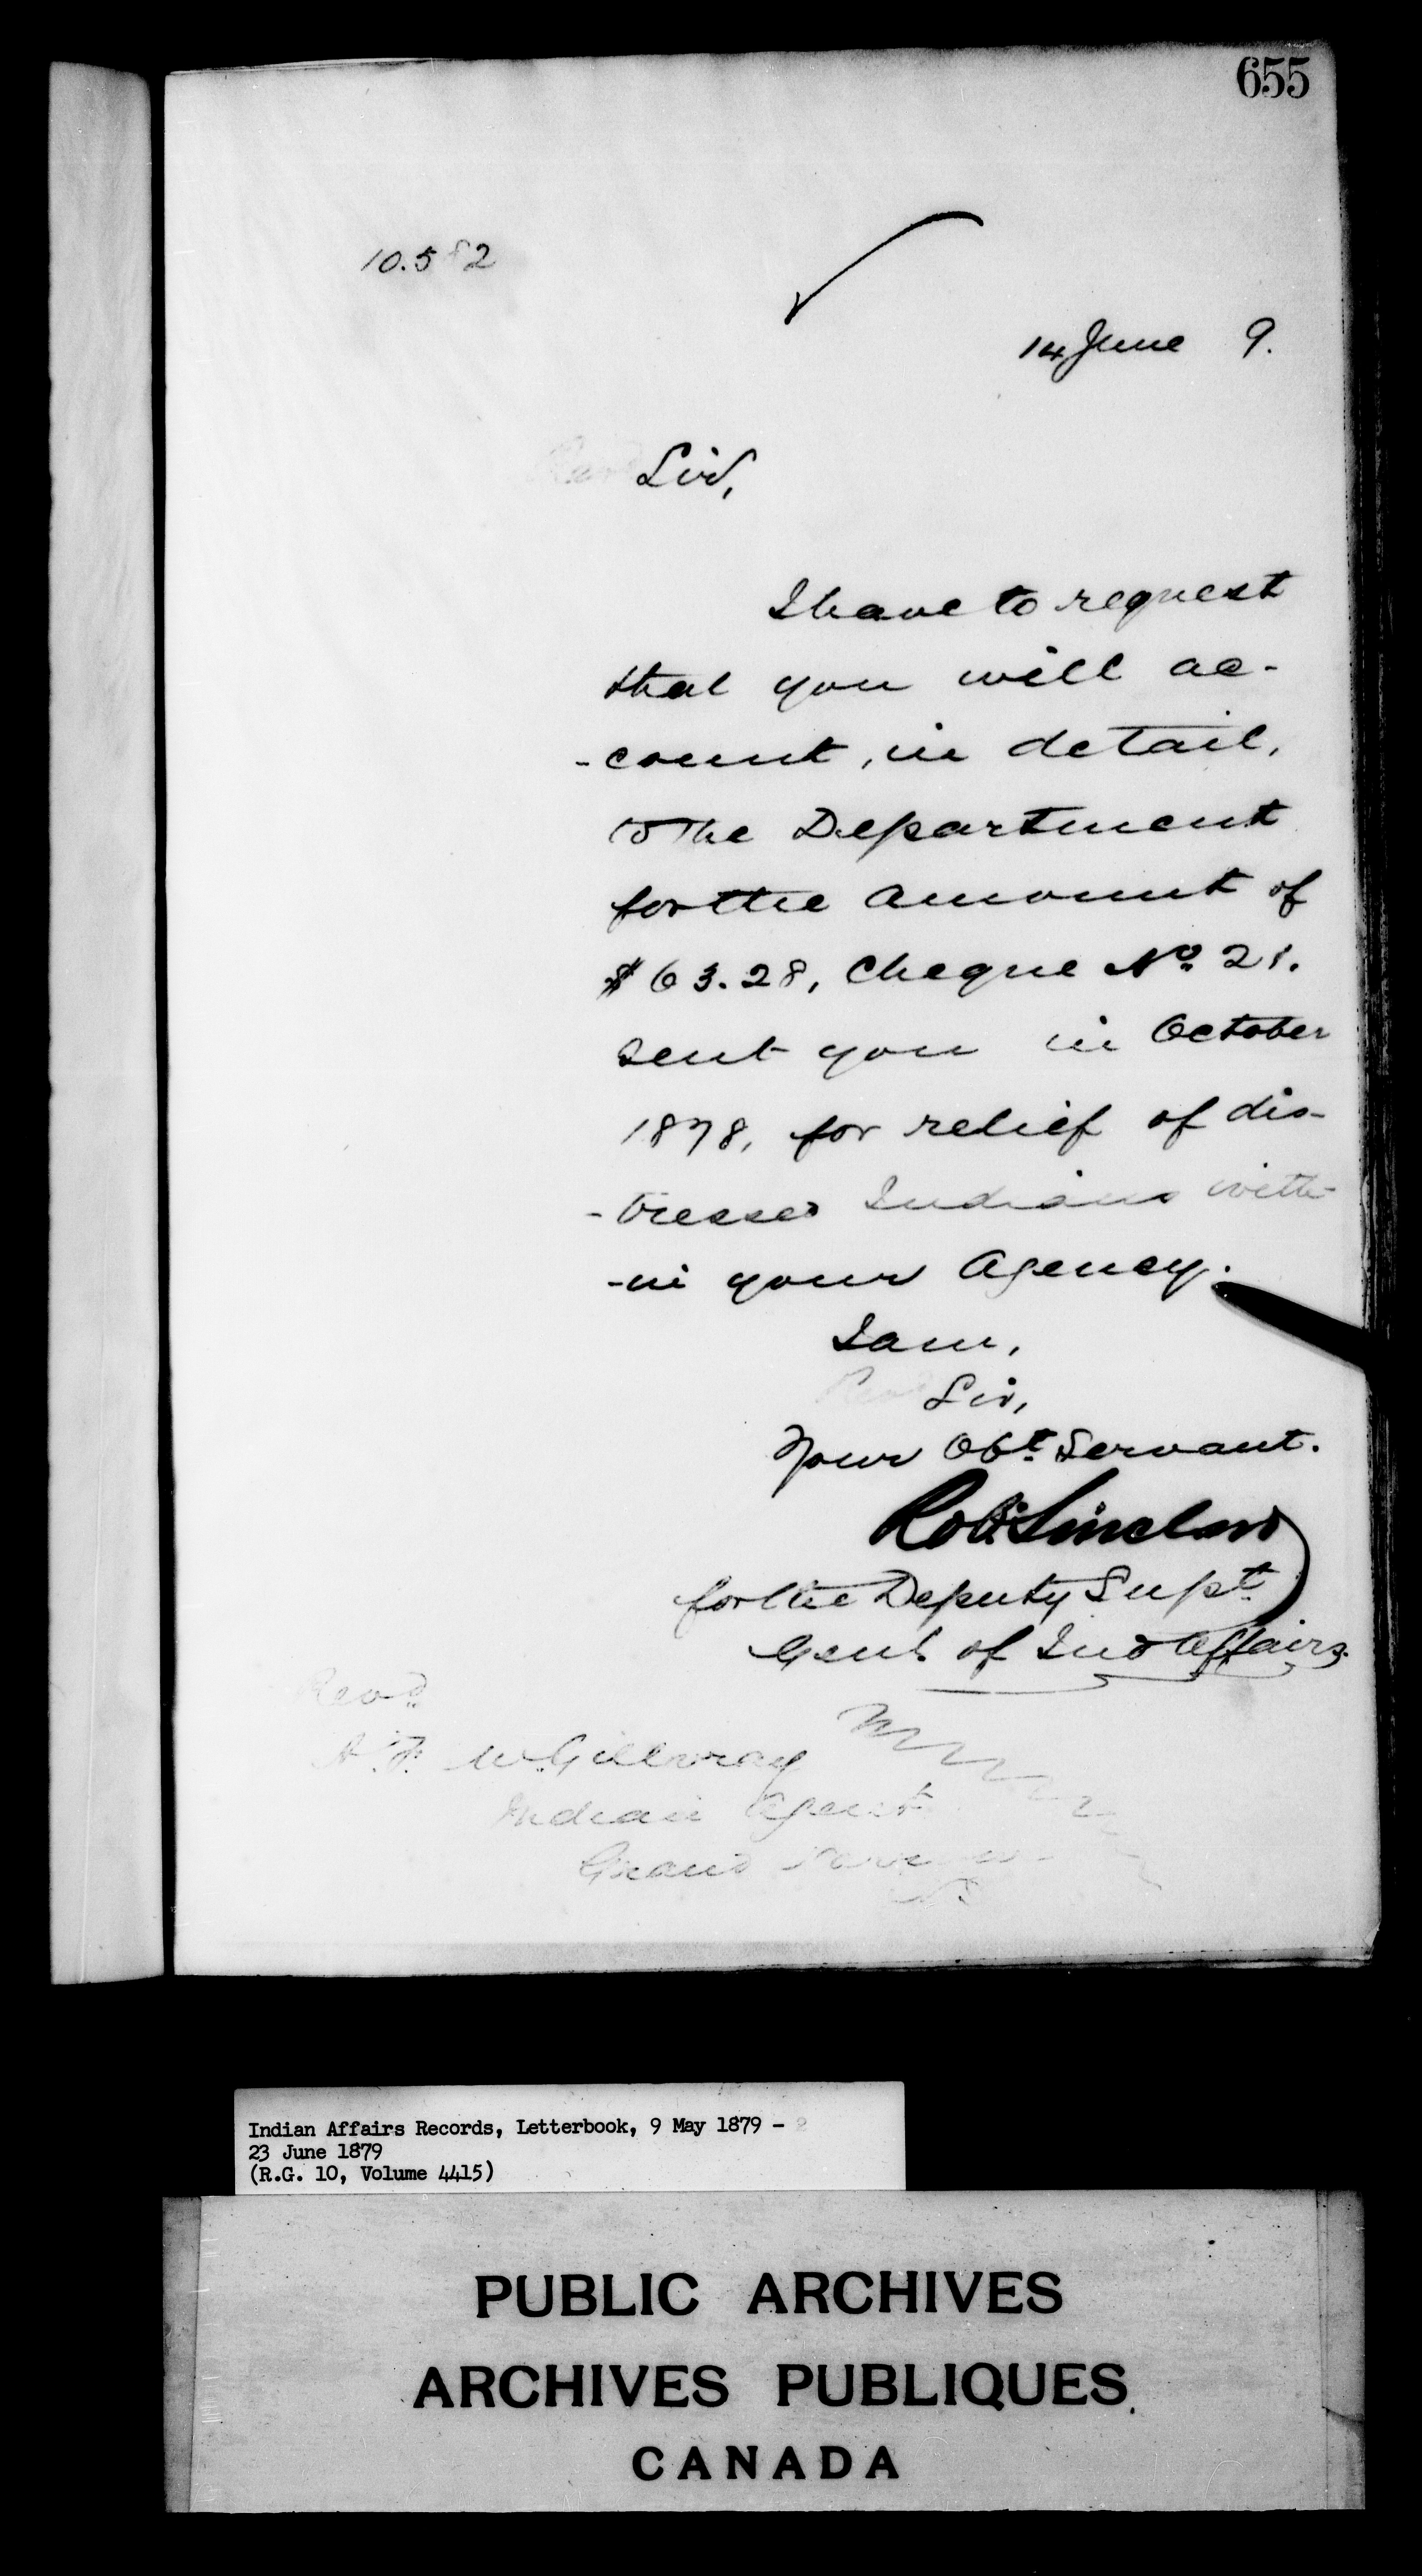 655
10.582
14 June 9.
Revd Sir,
I have to request
that you will ac-
-count, in detail,
to the Department
for the amount of
$63.28, Cheque No. 21.
sent you in October
1878, for relief of dis-
-tressed Indians with-
-in your Agency.
I am,
Revd Sir,
Your Obt. Servant.
Robt. Sinclair
for the Deputy Supt.
Genl. of Ind Affairs.
Revd.
McGillivray
Indian Agent
Grand
Indian Affairs Records, Letterbook, 9 May 1879 - 2
23 June 1879
(R.G. 10, Volume 4415)
PUBLIC ARCHIVES
ARCHIVES PUBLIQUES
CANADA